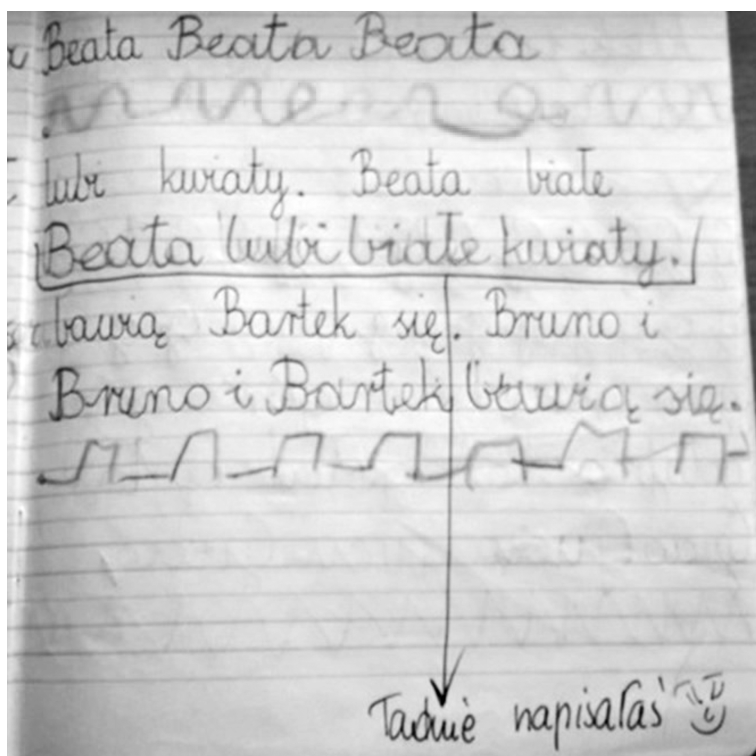 Beata Beata Beata
lubi kwiaty. Beata białe
Beata lubi białe kwiaty.
bawią Bartek się. Bruno i
Bruno i Bartek bawią się.
Ładnie napisałaś